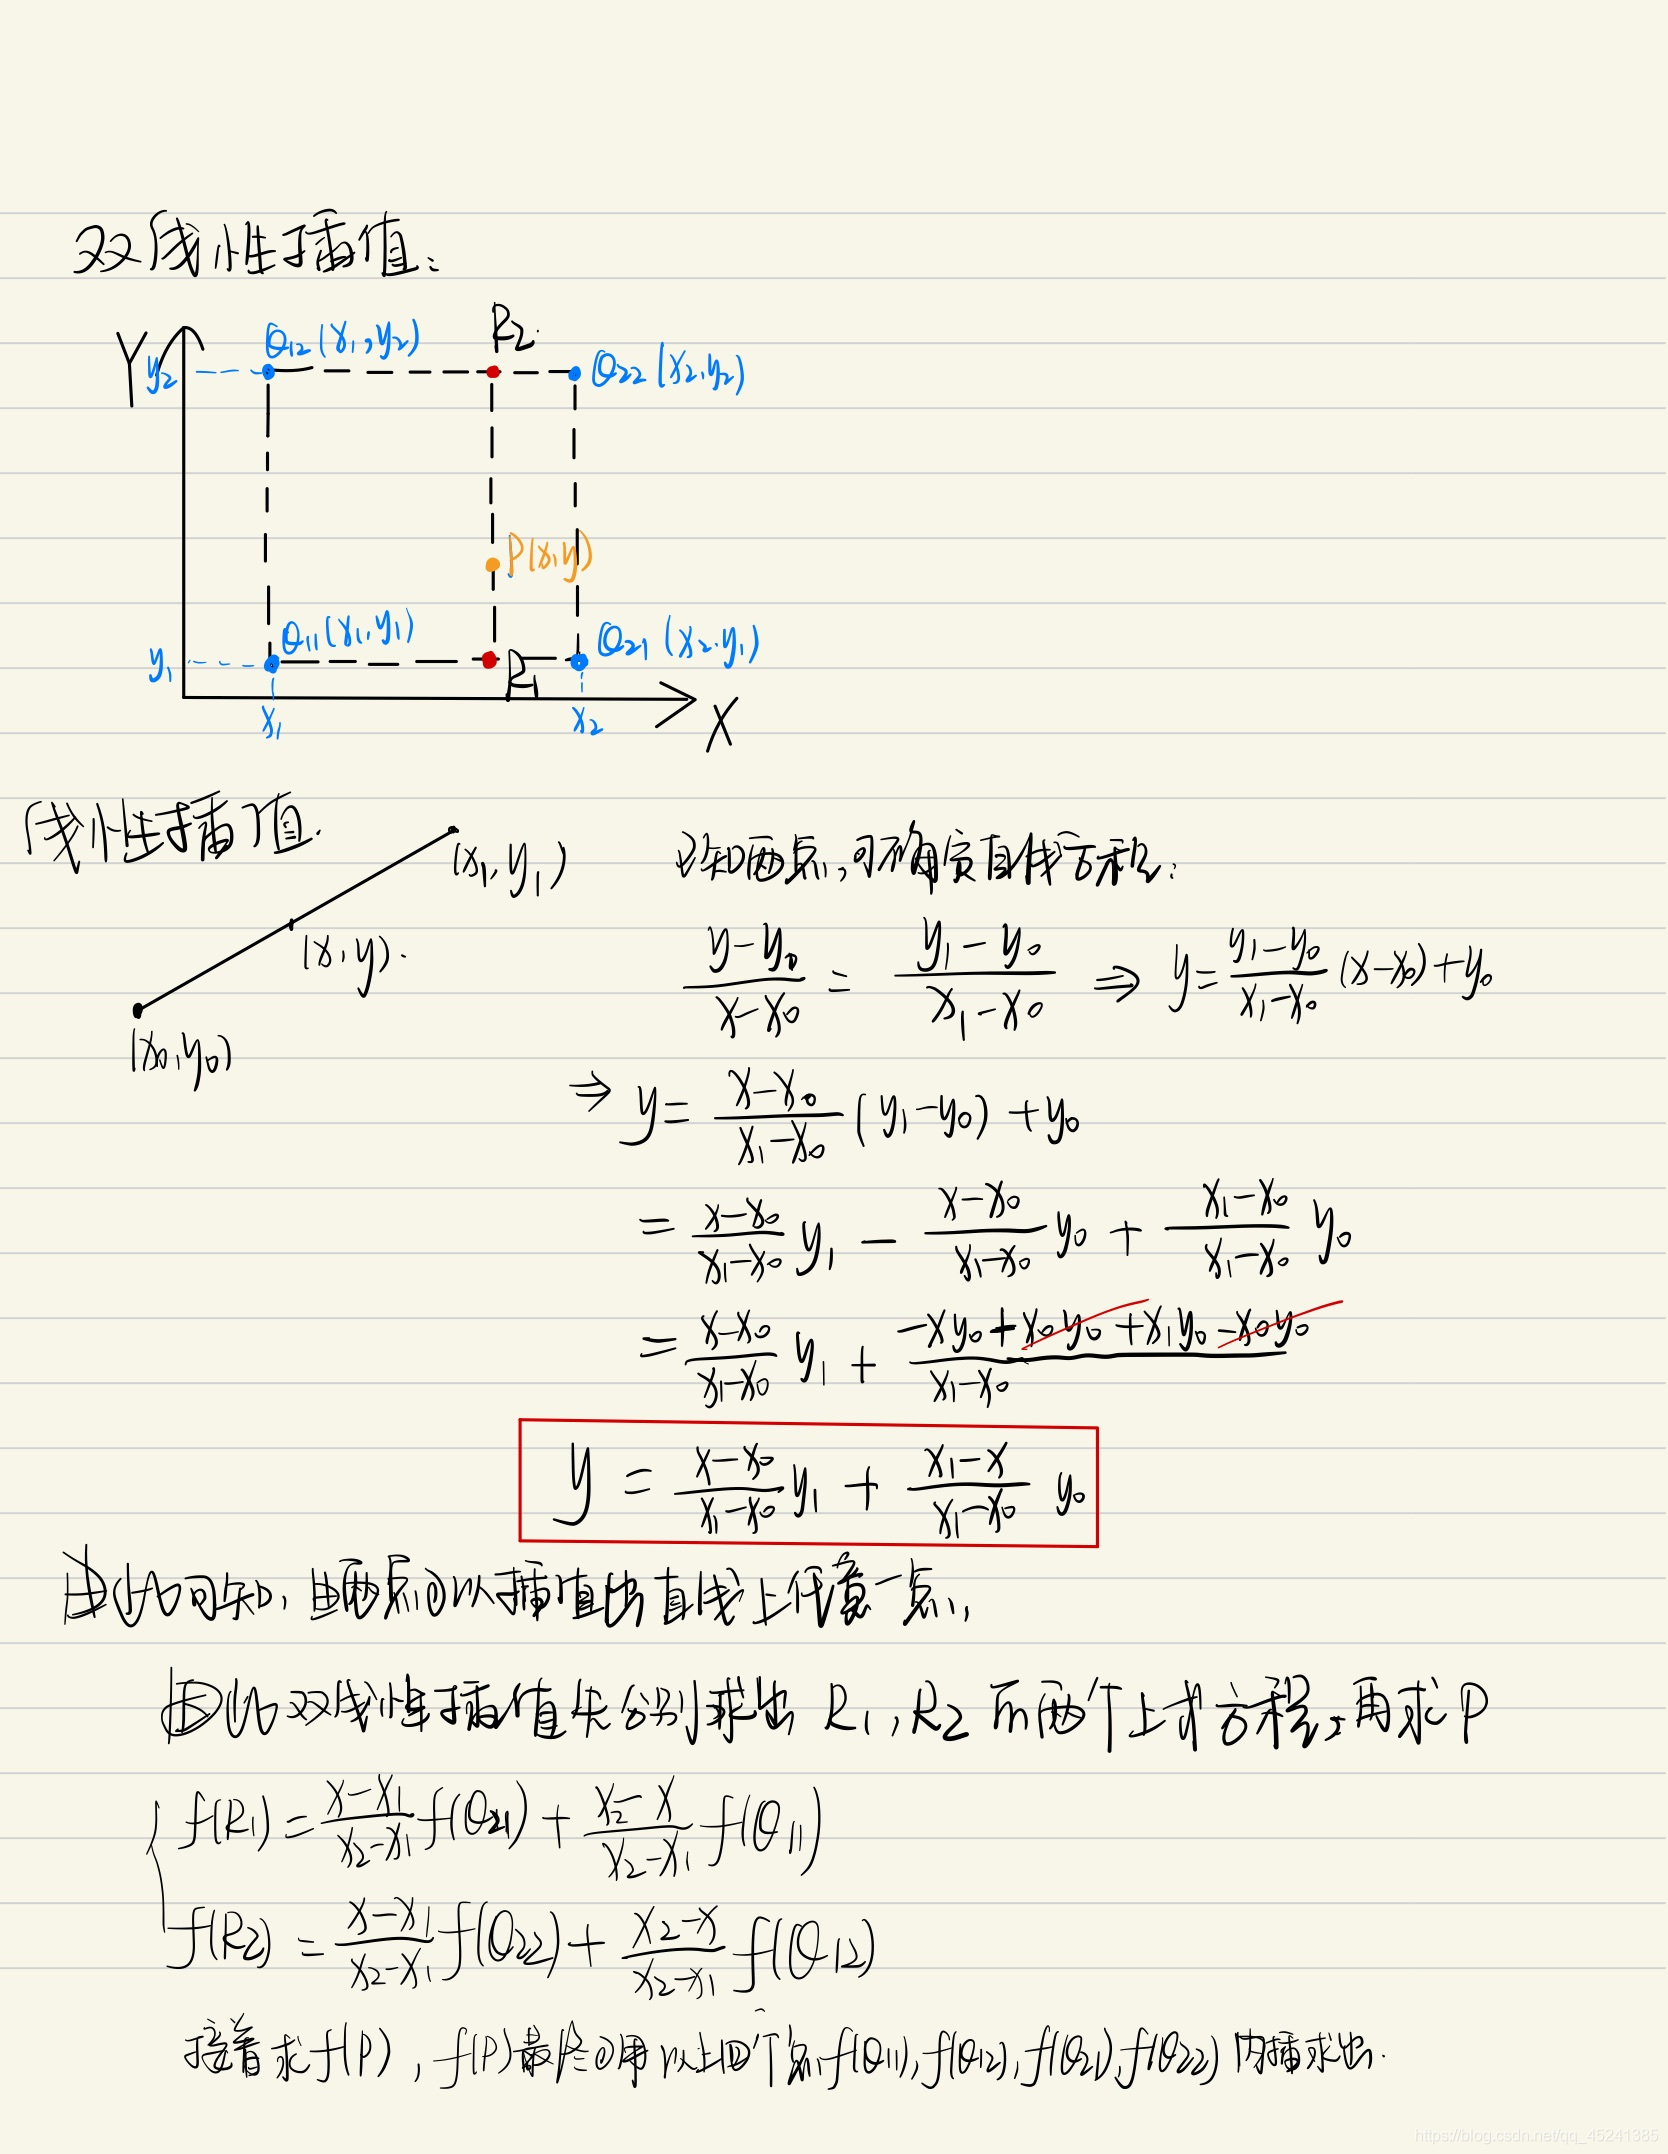 双线性插值:
Y
y₂
Q₁₂(x₁,y₂)
R₂
Q₂₂(x₂,y₂)
P(x,y)
y₁
Q₁₁(x₁,y₁)
R₁
Q₂₁(x₂,y₁)
x₁
x₂
X
线性插值.
(x₁,y₁)
(x,y).
(x₀,y₀)
已知两点,可确定直线方程:
(y-y₀)/(x-x₀) = (y₁-y₀)/(x₁-x₀) ⇒ y = (y₁-y₀)/(x₁-x₀) (x-x₀)+y₀
⇒ y = (x-x₀)/(x₁-x₀) (y₁-y₀)+y₀
= (x-x₀)/(x₁-x₀) y₁ - (x-x₀)/(x₁-x₀) y₀ + (x₁-x₀)/(x₁-x₀) y₀
= (x-x₀)/(x₁-x₀) y₁ + (-xy₀+x₀y₀+x₁y₀-x₀y₀)/(x₁-x₀)
y = (x-x₀)/(x₁-x₀) y₁ + (x₁-x)/(x₁-x₀) y₀
由此可知,由两点可以插值出直线上任意一点,
因此双线性插值先分别求出 R₁,R₂ 两个上式方程,再求P
f(R₁) = (x-x₁)/(x₂-x₁) f(Q₂₁) + (x₂-x)/(x₂-x₁) f(Q₁₁)
f(R₂) = (x-x₁)/(x₂-x₁) f(Q₂₂) + (x₂-x)/(x₂-x₁) f(Q₁₂)
接着求f(P),f(P)最终可用以上四个点f(Q₁₁),f(Q₁₂),f(Q₂₁),f(Q₂₂)内插求出.
https://blog.csdn.net/qq_45241385